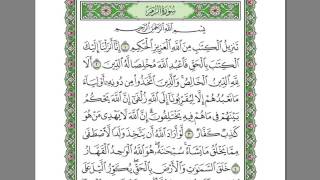 سُورَةُ الزُّمَرِ
بِسْمِ ٱللَّهِ ٱلرَّحْمَٰنِ ٱلرَّحِيمِ
تَنزِيلُ ٱلْكِتَٰبِ مِنَ ٱللَّهِ ٱلْعَزِيزِ ٱلْحَكِيمِ ١ إِنَّآ أَنزَلْنَآ إِلَيْكَ
ٱلْكِتَٰبَ بِٱلْحَقِّ فَٱعْبُدِ ٱللَّهَ مُخْلِصًا لَّهُ ٱلدِّينَ ٢ أَلَا
لِلَّهِ ٱلدِّينُ ٱلْخَالِصُ وَٱلَّذِينَ ٱتَّخَذُوا۟ مِن دُونِهِۦٓ أَوْلِيَآءَ
مَا نَعْبُدُهُمْ إِلَّا لِيُقَرِّبُونَآ إِلَى ٱللَّهِ زُلْفَىٰٓ إِنَّ ٱللَّهَ يَحْكُمُ
بَيْنَهُمْ فِى مَا هُمْ فِيهِ يَخْتَلِفُونَ إِنَّ ٱللَّهَ لَا يَهْدِى مَنْ هُوَ
كَٰذِبٌ كَفَّارٌ ٣ لَّوْ أَرَادَ ٱللَّهُ أَن يَتَّخِذَ وَلَدًا لَّٱصْطَفَىٰ
مِمَّا يَخْلُقُ مَا يَشَآءُ سُبْحَٰنَهُۥ هُوَ ٱللَّهُ ٱلْوَٰحِدُ ٱلْقَهَّارُ
٤ خَلَقَ ٱلسَّمَٰوَٰتِ وَٱلْأَرْضَ بِٱلْحَقِّ يُكَوِّرُ ٱلَّيْلَ عَلَى